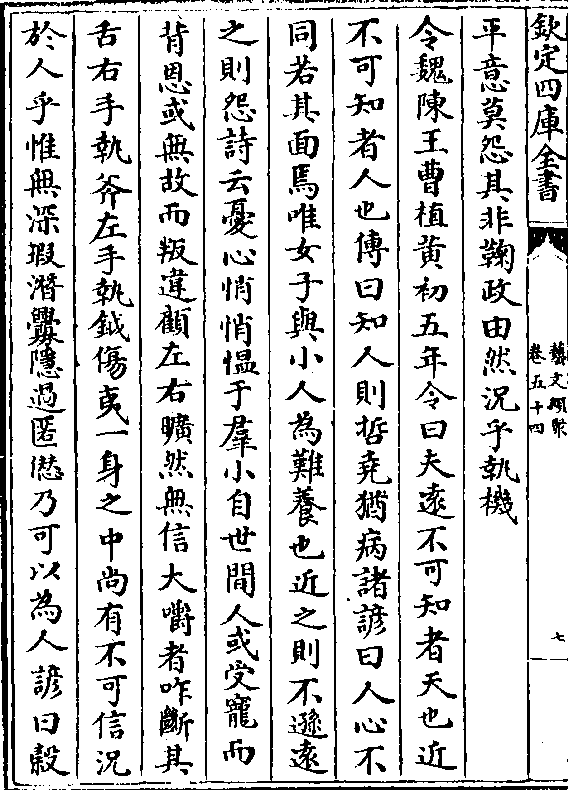 欽定四庫全書
藝文類聚
卷五十四
七
平意莫怨其非鞠政由然況乎執機
令魏陳王曹植黃初五年令曰夫遠不可知者天也近
不可知者人也傳曰知人則哲堯猶病諸諺曰人心不
同若其面焉唯女子與小人為難養也近之則不遜遠
之則怨詩云憂心悄悄愠于羣小自世間人或受寵而
背恩或無故而叛違顧左右曠然無信大嚼者咋斷其
舌右手執斧左手執鉞傷夷一身之中尚有不可信況
於人乎惟無深瑕潛釁隱過匿愆乃可以為人諺曰穀